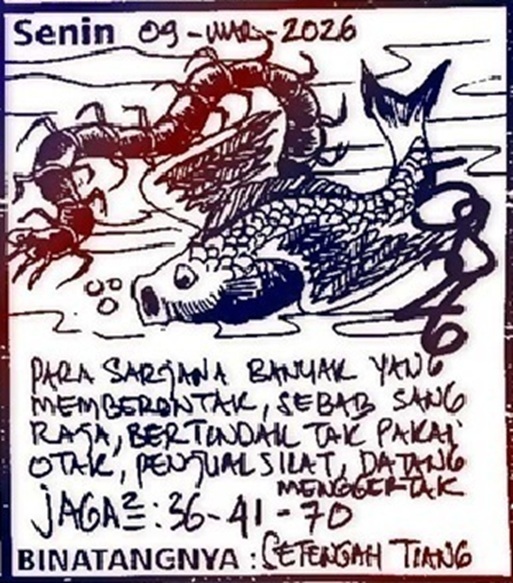 Senin 09-MAR-2026
PARA SARJANA BANYAK YANG
MEMBERONTAK, SEBAB SANG
RAJA, BERTINDAK TAK PAKAI
OTAK, PENJUAL SILAT, DATANG
MENGGERTAK
JAGA2=: 36-41-70
BINATANGNYA : SETENGAH TIANG